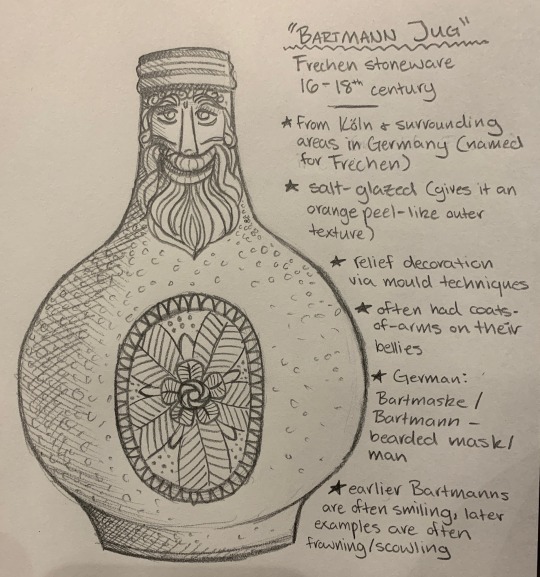 "BARTMANN JUG"
Frechen stoneware
16-18th century
★ From Köln & surrounding
areas in Germany (named
for Frechen)
★ salt-glazed (gives it an
orange peel-like outer
texture)
★ relief decoration
via mould techniques
★ often had coats-
of-arms on their
bellies
★ German:
Bartmaske /
Bartmann -
bearded mask/
man
★ earlier Bartmanns
are often smiling, later
examples are often
frowning/scowling